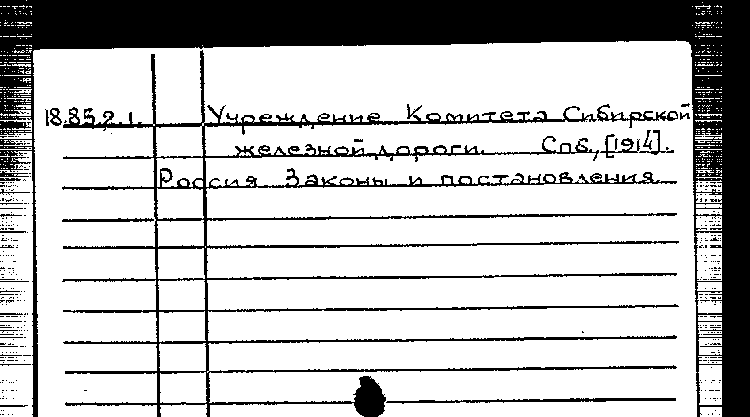 18.85.2.1. Учреждение Комитета Сибирской
железной дороги. Спб., [1914].
Россия. Законы и постановления.